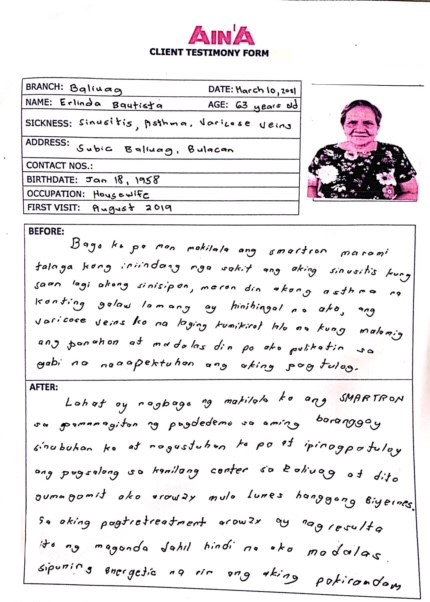 AIN'A
CLIENT TESTIMONY FORM
BRANCH: Baliuag DATE: March 10, 2021
NAME: Erlinda Bautista AGE: 63 years old
SICKNESS: Sinusitis, Asthma, Varicose Veins
ADDRESS: Subic Baliuag, Bulacan
CONTACT NOS.:
BIRTHDATE: Jan 18, 1958
OCCUPATION: Housewife
FIRST VISIT: August 2019
BEFORE:
Bago ko pa man makilala ang smartron marami
talaga kong iniindang mga sakit ang aking sinusitis kung
saan lagi akong sinisipon, meron din akong asthma na
konting galaw lamang ay hinihingal na ako, ang
varicose veins ko na laging kumikirot lalo na kung malamig
ang panahon at madalas din po ako pulikatin sa
gabi na naaapektuhan ang aking pag tulog.
AFTER:
Lahat ay nagbago ng makilala ko ang SMARTRON
sa pamamagitan ng pagdedemo sa aming baranggay
sinubukan ko at nagustuhan ko pa at ipinagpatuloy
ang pagsalang sa kanilang center sa Baliuag at dito
gumagamit ako araw2x mula Lunes hanggang Biyernes.
Sa aking pagtretreatment araw2x ay nag resulta
ito ng maganda dahil hindi na ako madalas
sipunin, energetic na rin ang aking pakiramdam